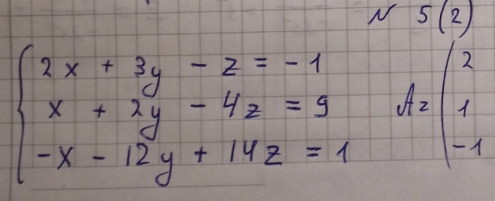 N 5(2)
2x + 3y - z = -1
x + 2y - 4z = 9
-x - 12y + 14z = 1
A =
2
1
-1